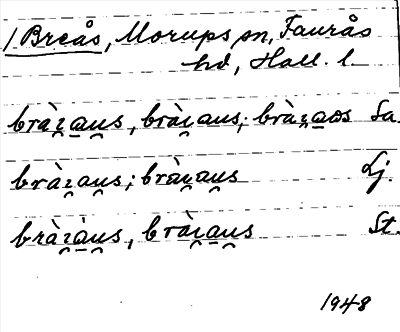 1 Breås, Morups sn, Faurås
hd, Hall. l.
bràɩ̯a̲u̯s, bràɩ̯au̯s; bràɩ̯a̲os Sa.
bràɩ̯au̯s; bràɩ̯au̯s Lj.
bràɩ̯àu̯s, bràɩ̯a̲u̯s St.
1948